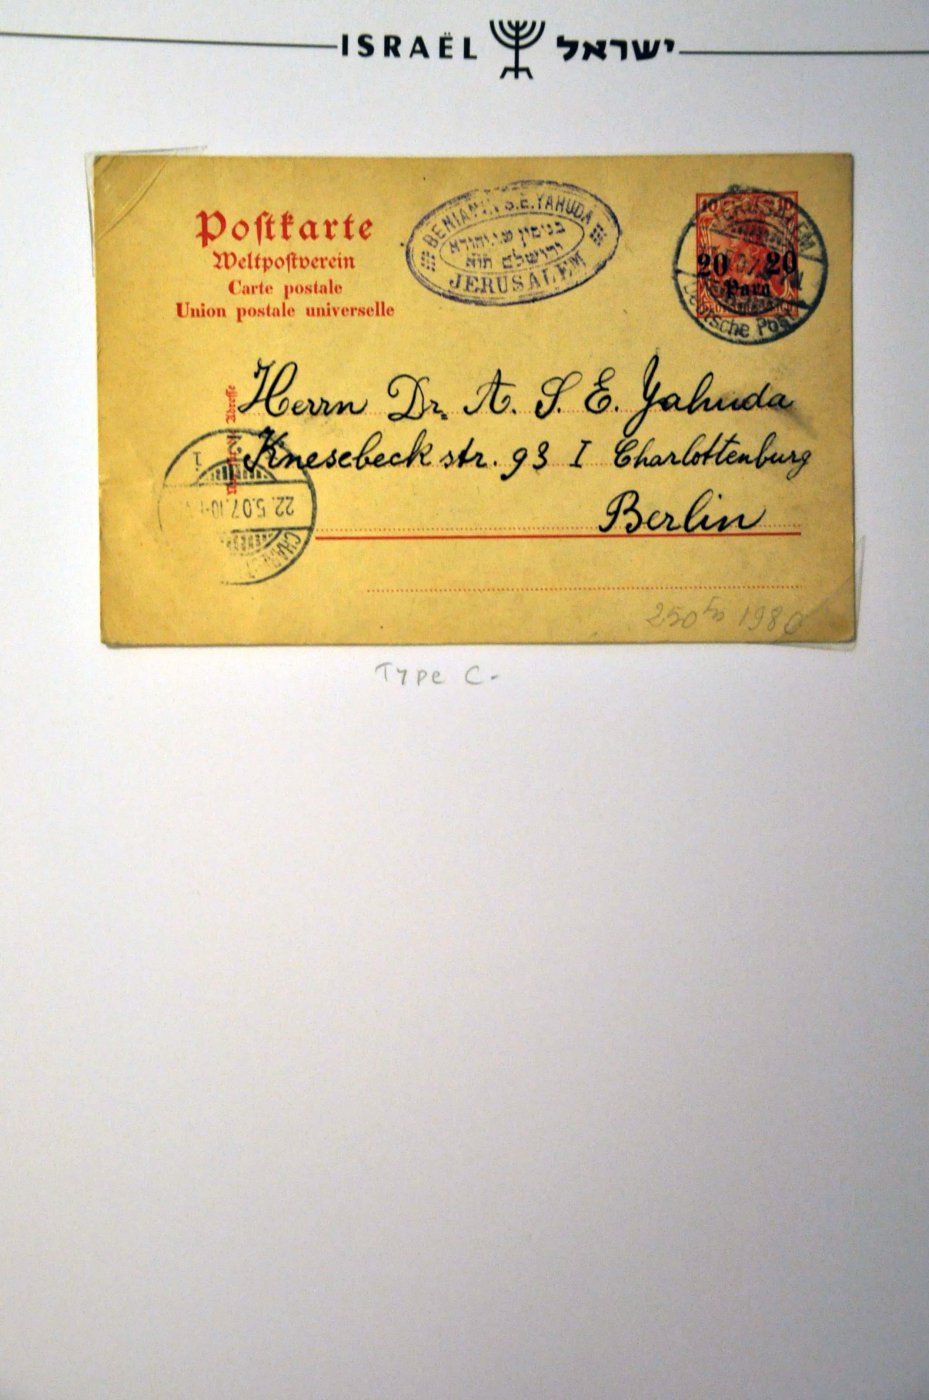 ISRAËL ישראל
Postkarte
Weltpostverein
Carte postale
Union postale universelle
BENJAMIN S.E. YAHUDA
ירושלם תוא
JERUSALEM
10 10
20 20
Para
JERUSALEM
Deutsche Post
Herrn Dr. A. S. E. Yahuda
Knesebeck str. 93 I Charlottenburg
Berlin
22.5.07.
250 1980
Type C-